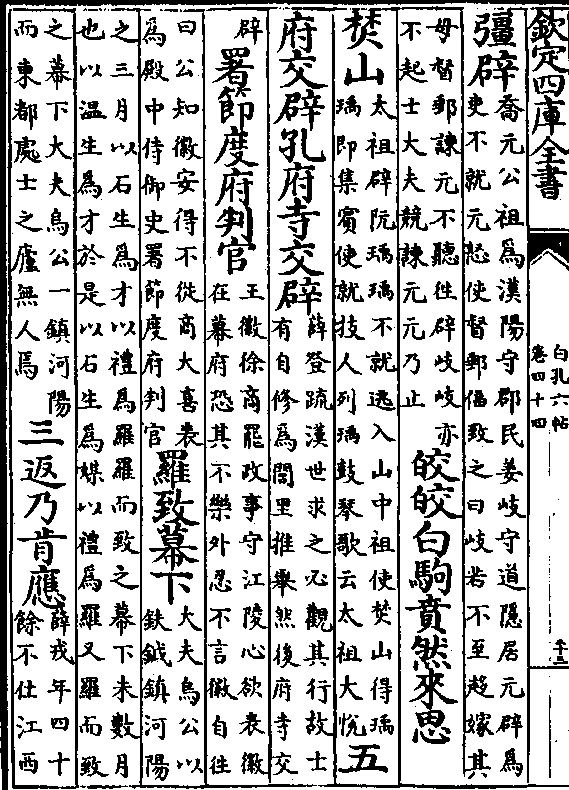 欽定四庫全書
白孔六帖
卷四十四
彊辟
喬元公祖爲漢陽守郡民姜岐守道隱居元辟爲
吏不就元怒使督郵偪致之曰岐若不至趨嫁其
母督郵諫元不聽徃辟岐岐亦
不起士大夫競諫元元乃止
皎皎白駒賁然來思
焚山
太祖辟阮瑀瑀不就逃入山中祖使焚山得瑀
瑀即集賓使就技人列瑀鼓琴歌云太祖大悅
五
府交辟孔府寺交辟
薛登疏漢世求之必觀其行故士
有自修爲閭里推舉然後府寺交
辟
署節度府判官
王徽徐商罷政事守江陵心欲表徽
在幕府恐其不樂外忍不言徽自徃
曰公知徽安得不從商大喜表
爲殿中侍御史署節度府判官
羅致幕下
大夫烏公以
鈇鉞鎮河陽
之三月以石生爲才以禮爲羅羅而致之幕下未數月
也以溫生爲才於是以石生爲媒以禮爲羅又羅而致
之幕下大夫烏公一鎮河陽
而東都處士之廬無人焉
三返乃肯應
薛戎年四十
餘不仕江西